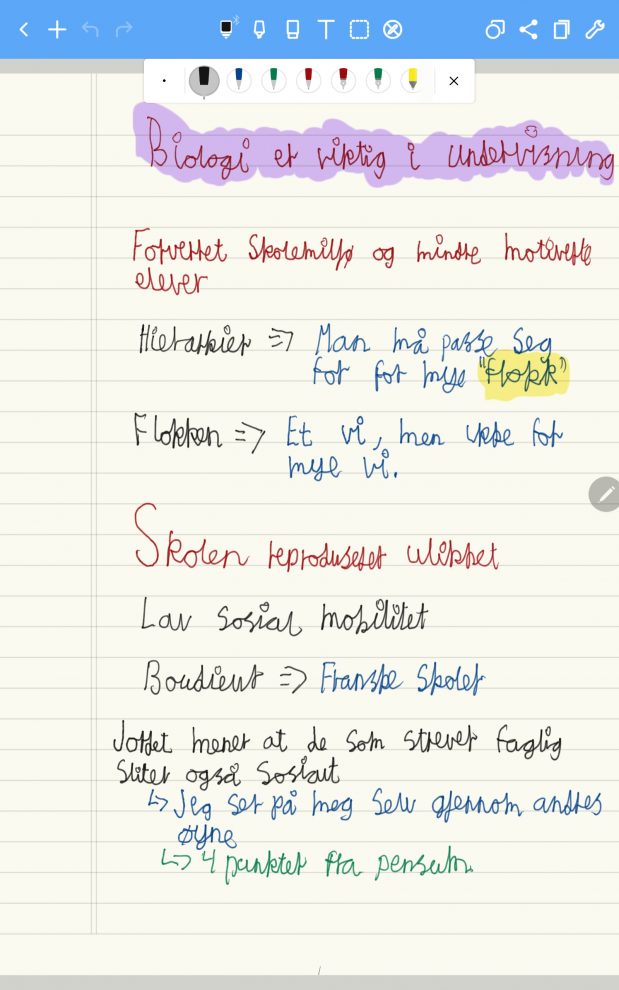 Biologi er viktig i undervisning
Forverret skolemiljø og mindre motiverte
elever
Hierarkier => Man må passe seg
for for mye "flokk"
Flokken => Et vi, men ikke for
mye vi.
Skolen reproduserer ulikhet
Lav sosial mobilitet
Boudieut => Franske skoler
Jordet mener at de som strever faglig
sliter også sosialt
↳ Jeg ser på meg selv gjennom andres
øyne
↳ 4 punkter fra pensum.